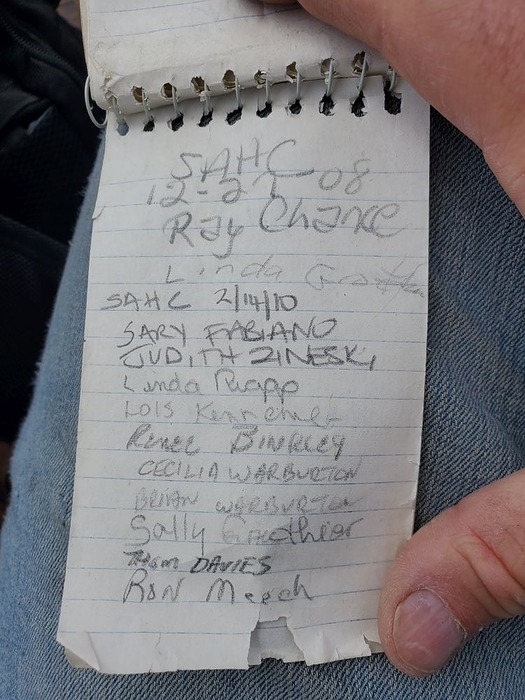 SAHC
12-27-08
Ray Chance
Linda
SAHC 2/14/10
GARY FABIANO
JUDITH ZINESKI
Linda Rapp
LOIS
Renee BINKLEY
CECILIA WARBURTON
BRIAN WARBURTON
Sally Gaucher
Thom DAVIES
RON Meech